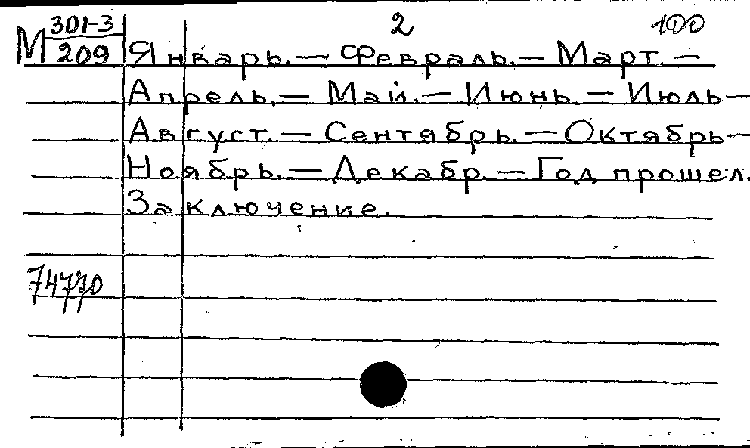 М 301-3/209 2 100
Январь. — Февраль. — Март. —
Апрель. — Май. — Июнь. — Июль —
Август. — Сентябрь. — Октябрь —
Ноябрь. — Декабр. — Год прошел.
Заключение.
74770